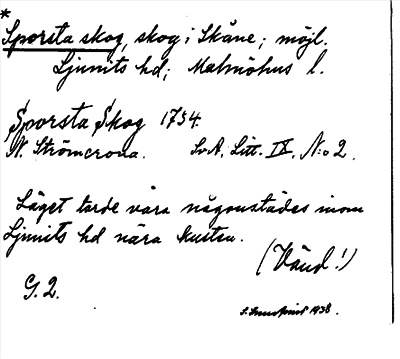 *
Sporsta skog, skog i Skåne; möjl.
Ljunits hd; Malmöhus l.
Sporsta Skog 1734.
N. Strömcrona. Sv. A. Litt. IX. N:o 2.
Läget torde vara någonstädes inom
Ljunits hd nära kusten.
(Vänd!)
G. 2.
1938.